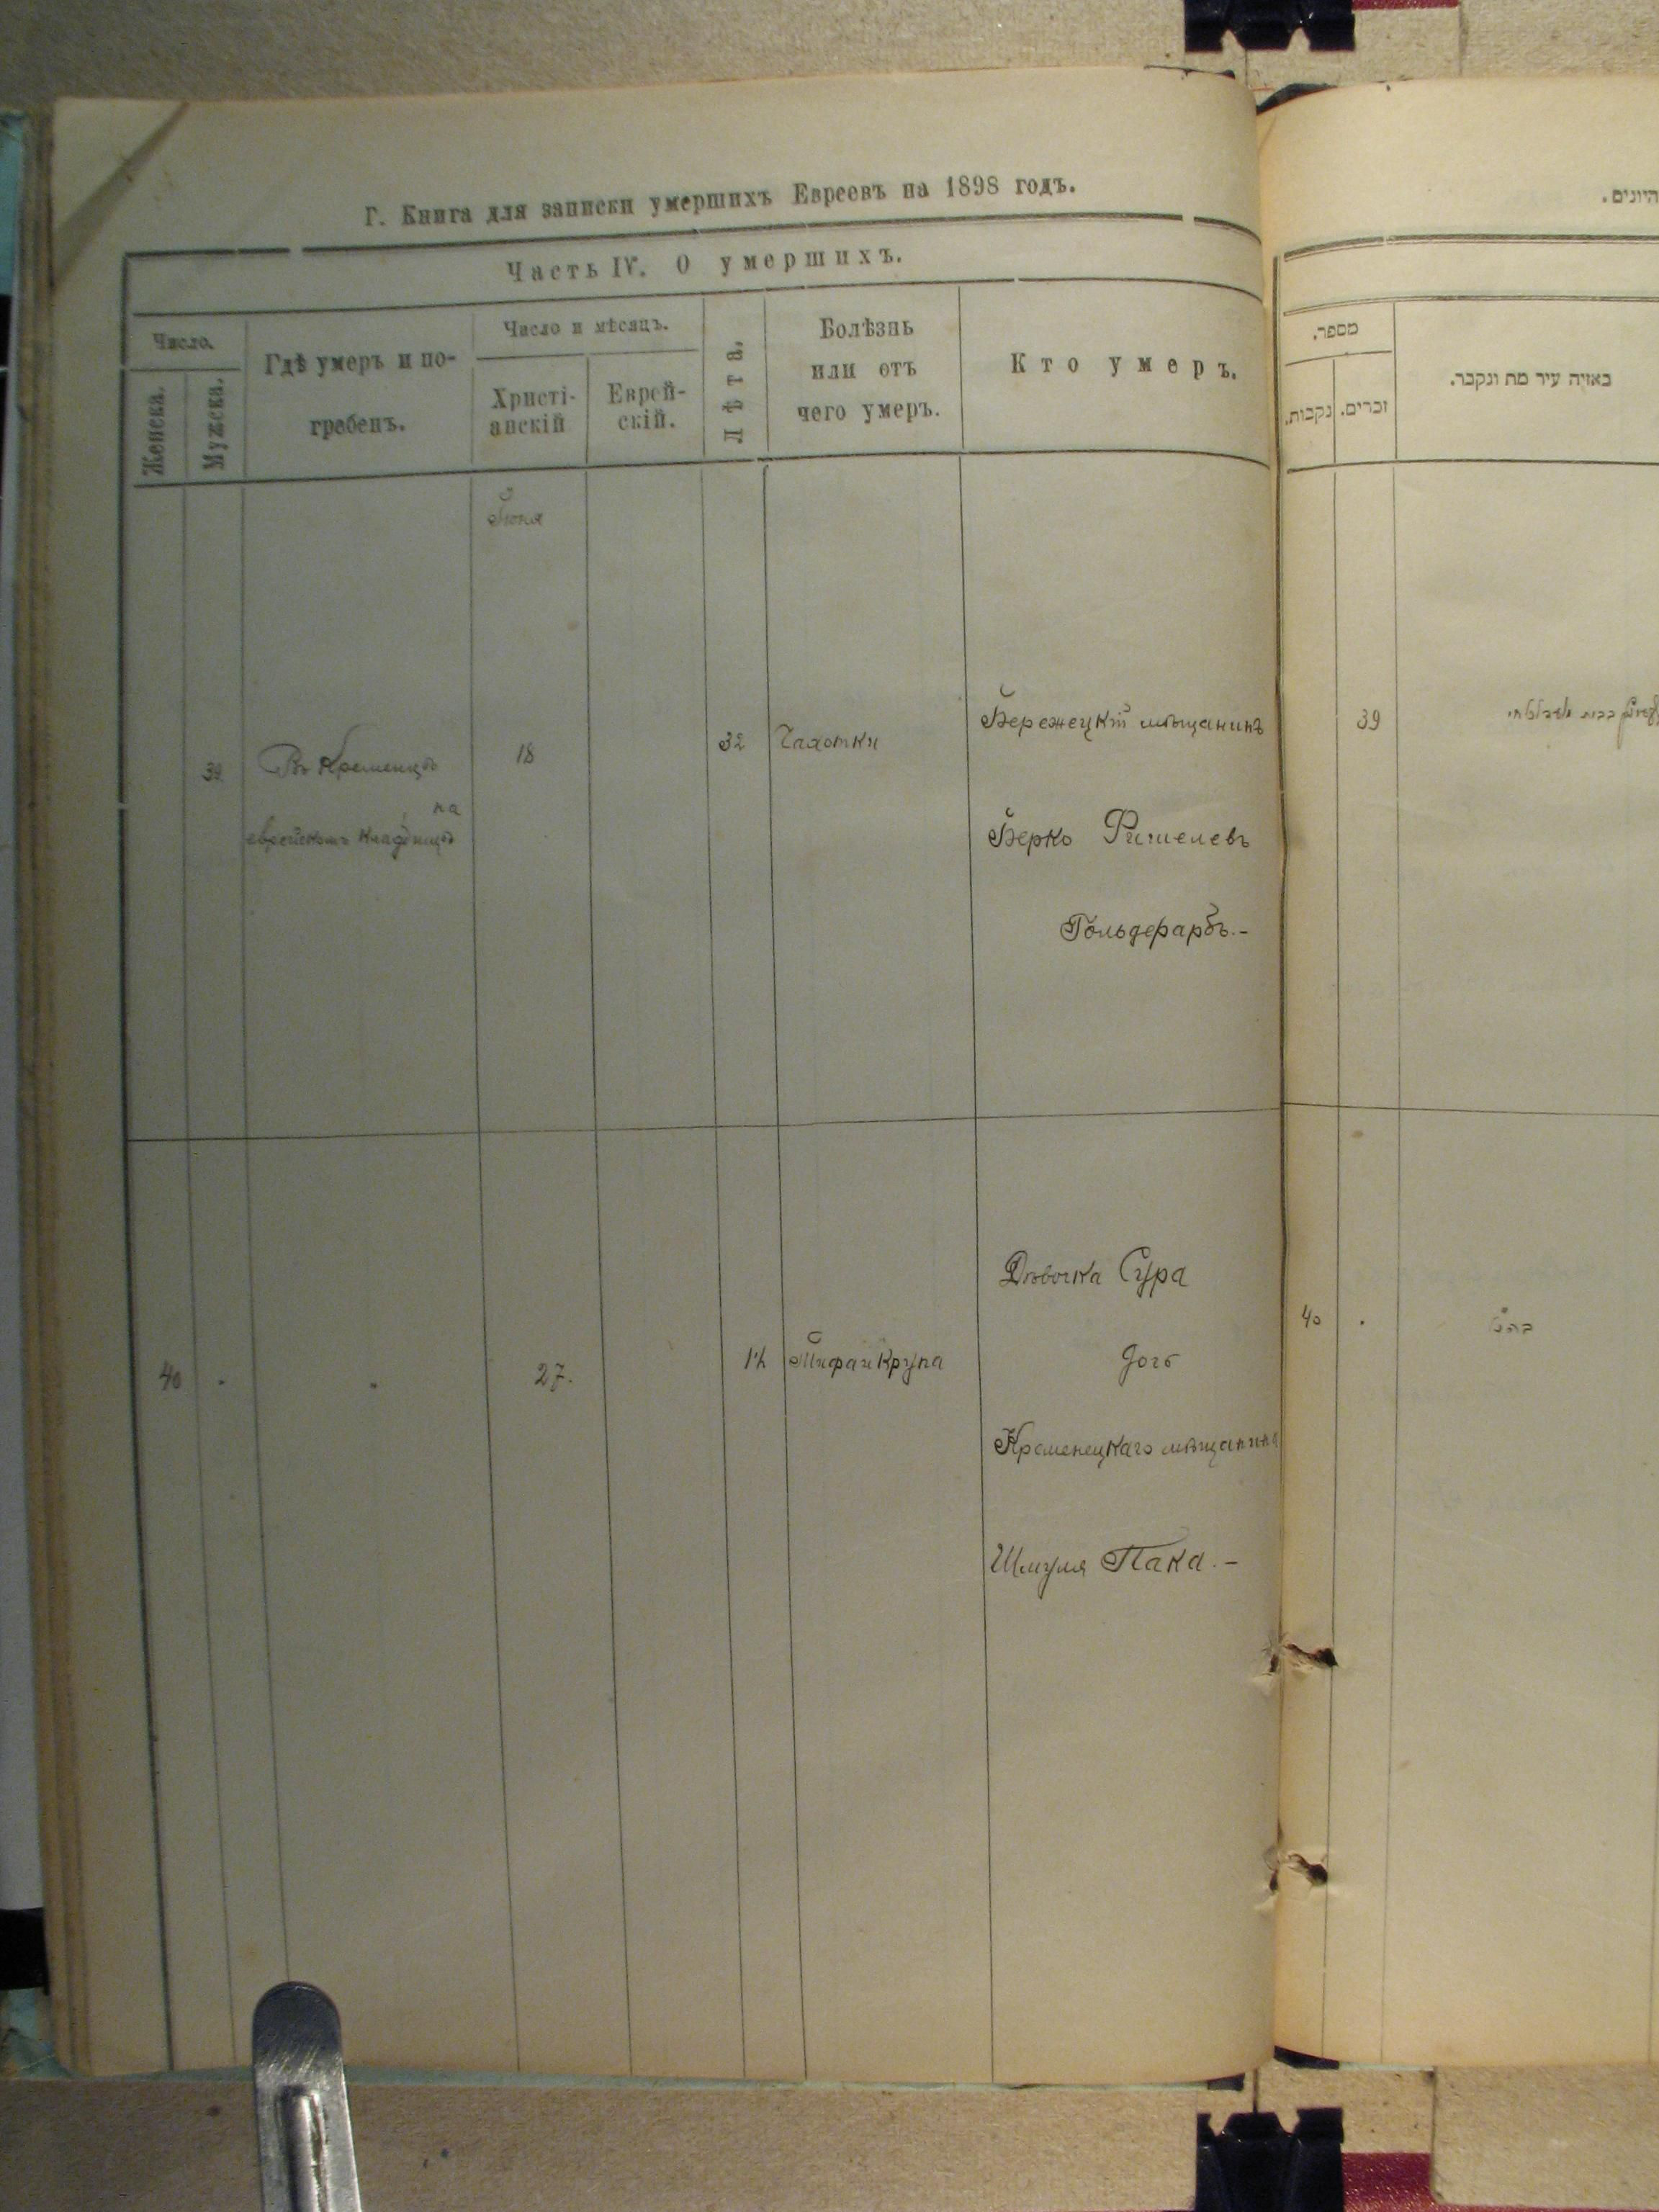 Г. Книга для записки умершихъ Евреевъ на 1898 годъ.
Часть IV. О умершихъ.
Число.
Женска.
Мужска.
Гдѣ умеръ и по-
гребенъ.
Число и мѣсяцъ.
Христі-
анскій
Еврей-
скій.
Лѣта.
Болѣзнь
или отъ
чего умеръ.
Кто умеръ.
Іюня
39
Въ Кременцѣ
на
еврейскомъ кладбищѣ
18
32
Чахотки
Бережецкій мѣщанинъ
Берко
Гольдфарбъ.-
40
27.
Дѣвочка Сура
дочь
Кременецкаго мѣщанина
Шмуля Пака.-
היונים.
מספר.
נקבות.
זכרים.
באיזה עיר מת ונקבר.
39
40